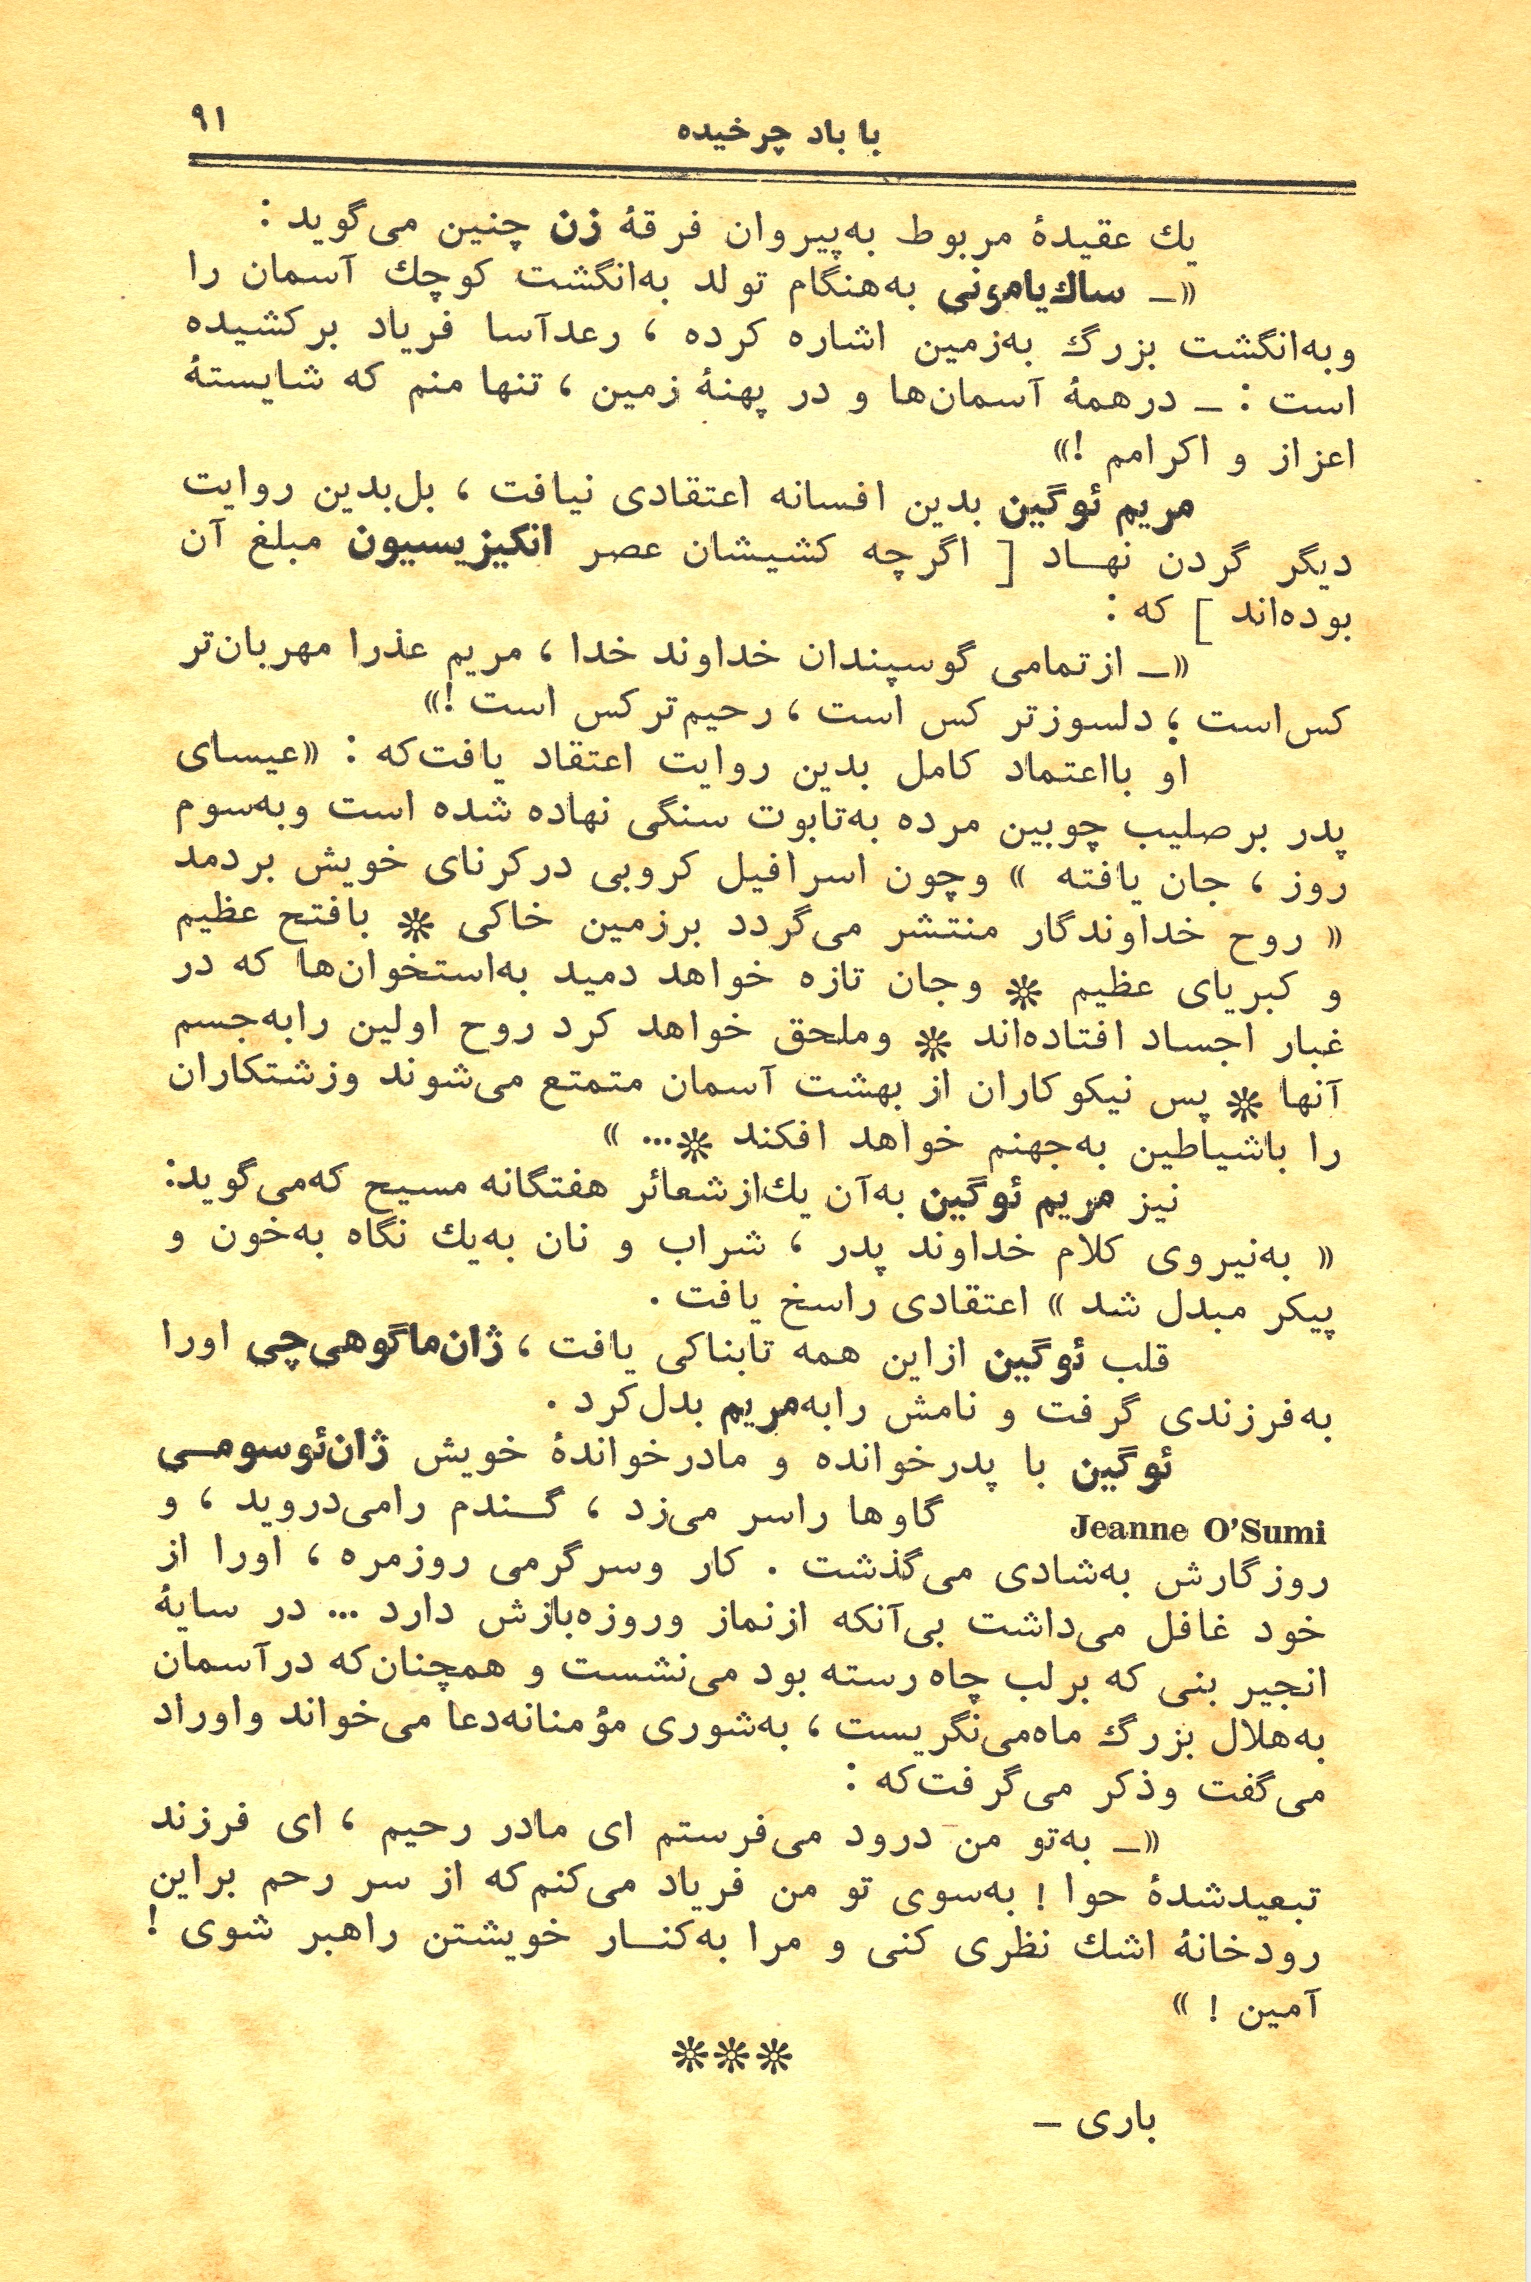 با باد چرخیده
۹۱
یك عقیدهٔ مربوط به‌پیروان فرقهٔ زن چنین می‌گوید :
«ـ ساك‌یامونی به‌هنگام تولد به‌انگشت كوچك آسمان را
وبه‌انگشت بزرگ به‌زمین اشاره كرده ، رعدآسا فریاد بركشیده
است : ـ درهمهٔ آسمان‌ها و در پهنهٔ زمین ، تنها منم كه شایستهٔ
اعزاز و اكرامم !»
مریم ئوگین بدین افسانه اعتقادی نیافت ، بل‌بدین روایت
دیگر گردن نهاد [ اگرچه كشیشان عصر انكیزیسیون مبلغ آن
بوده‌اند ] كه :
«ـ ازتمامی گوسپندان خداوند خدا ، مریم عذرا مهربان‌تر
كس‌است ؛ دلسوزتر كس است ، رحیم‌تركس است !»
او بااعتماد كامل بدین روایت اعتقاد یافت‌كه : «عیسای
پدر برصلیب چوبین مرده به‌تابوت سنگی نهاده شده است وبه‌سوم
روز ، جان یافته » وچون اسرافیل كروبی دركرنای خویش بردمد
« روح خداوندگار منتشر می‌گردد برزمین خاكی ❊ بافتح عظیم
و كبریای عظیم ❊ وجان تازه خواهد دمید به‌استخوان‌ها كه در
غبار اجساد افتاده‌اند ❊ وملحق خواهد كرد روح اولین رابه‌جسم
آنها ❊ پس نیكوكاران از بهشت آسمان متمتع می‌شوند وزشتكاران
را باشیاطین به‌جهنم خواهد افكند ❊... »
نیز مریم ئوگین به‌آن یك‌ازشعائر هفتگانه مسیح كه‌می‌گوید:
« به‌نیروی كلام خداوند پدر ، شراب و نان به‌یك نگاه به‌خون و
پیكر مبدل شد » اعتقادی راسخ یافت .
قلب ئوگین ازاین همه تابناكی یافت ، ژان‌ماگوهی‌چی اورا
به‌فرزندی گرفت و نامش رابه‌مریم بدل‌كرد .
ئوگین با پدرخوانده و مادرخواندهٔ خویش ژان‌ئوسومی
Jeanne O'Sumi گاوها راسر می‌زد ، گندم رامی‌دروید ، و
روزگارش به‌شادی می‌گذشت . كار وسرگرمی روزمره ، اورا از
خود غافل می‌داشت بی‌آنكه ازنماز وروزه‌بازش دارد ... در سایهٔ
انجیر بنی كه برلب چاه رسته بود می‌نشست و همچنان‌كه درآسمان
به‌هلال بزرگ ماه‌می‌نگریست ، به‌شوری مؤمنانه‌دعا می‌خواند واوراد
می‌گفت وذكر می‌گرفت‌كه :
«ـ به‌تو من درود می‌فرستم ای مادر رحیم ، ای فرزند
تبعیدشدهٔ حوا ! به‌سوی تو من فریاد می‌كنم‌كه از سر رحم براین
رودخانهٔ اشك نظری كنی و مرا به‌كنار خویشتن راهبر شوی !
آمین ! »
❊❊❊
باری ـ